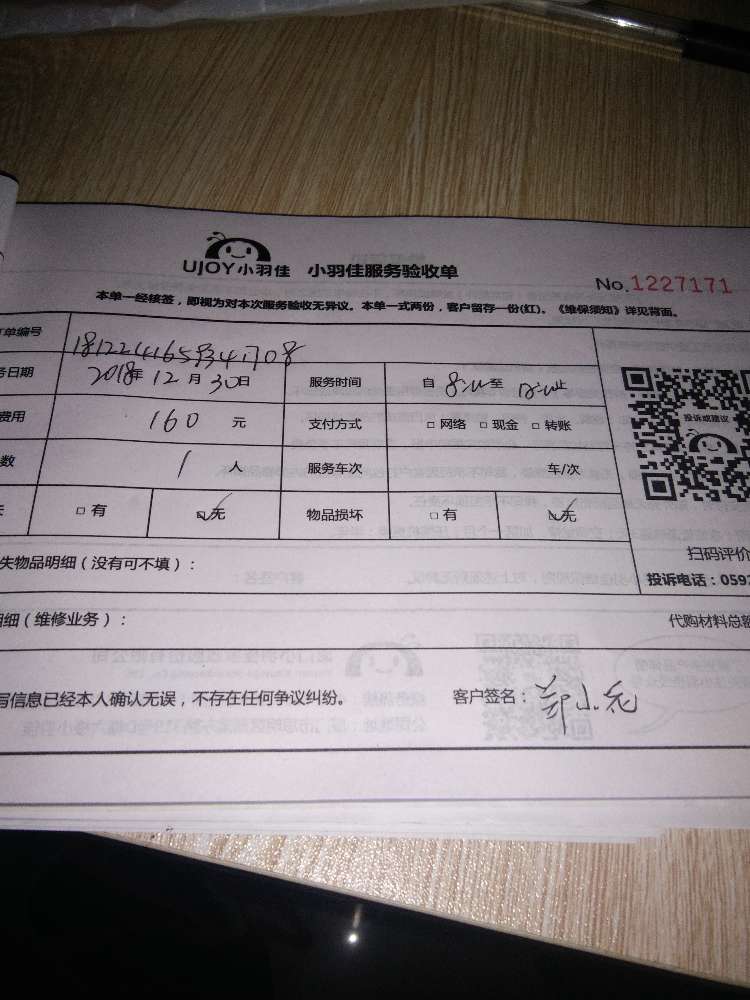 UJOY小羽佳 小羽佳服务验收单
No.1227171
本单一经核签，即视为对本次服务验收无异议。本单一式两份，客户留存一份(红)。《维保须知》详见背面。
单编号
日期 2018年 12月 30日 服务时间 自 至 止
费用 160 元 支付方式 □ 网络 □ 现金 □ 转账
数 1 人 服务车次 车/次
□ 有 □ 无 物品损坏 □ 有 □ 无
投诉或建议
失物品明细（没有可不填）：
扫码评价
投诉电话：059
细（维修业务）：
代购材料总额
写信息已经本人确认无误，不存在任何争议纠纷。 客户签名：郑小